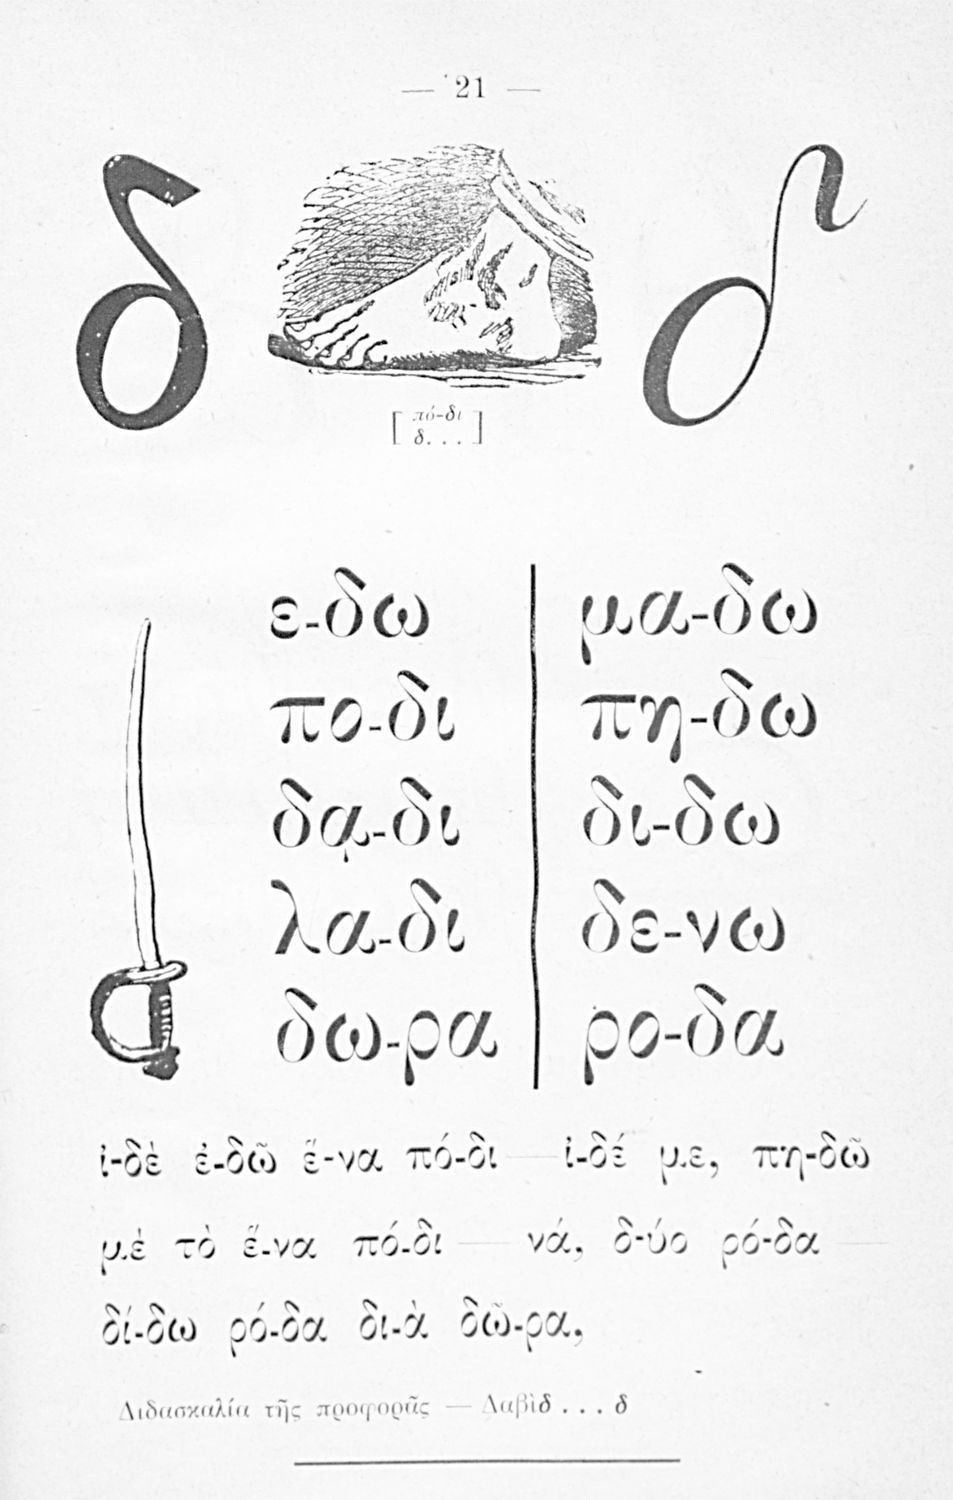 — 21 —
δ δ
[ πό-δι
δ. . . ]
ε-δω μα-δω
πο-δι πη-δω
δᾳ-δι δι-δω
λα-δι δε-νω
δω-ρα ρο-δα
ἰ-δὲ ἐ-δῶ ἕ-να πό-δι — ἰ-δέ με, πη-δῶ
μὲ τὸ ἕ-να πό-δι — νά, δ-ύο ρό-δα —
δί-δω ρό-δα δι-ὰ δῶ-ρα,
Διδασκαλία τῆς προφορᾶς — Δαβὶδ . . . δ